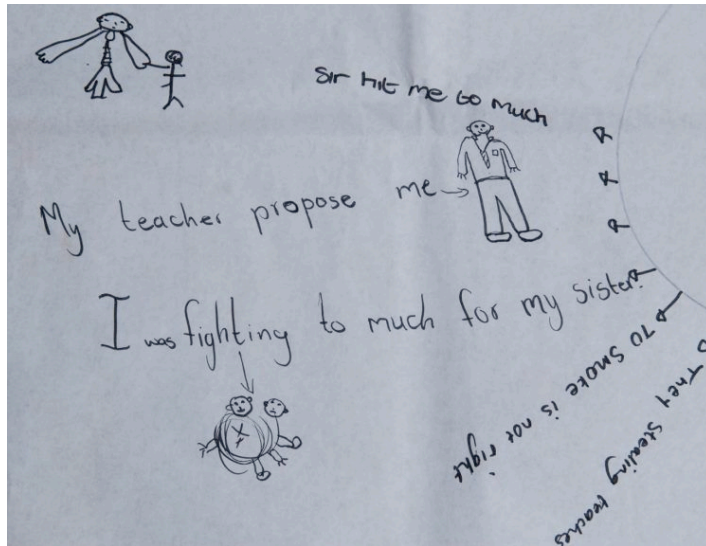 Sir hit me to much
My teacher propose me
I was fighting to much for my sister.
TO SMOKE is not right
They stealing teaches